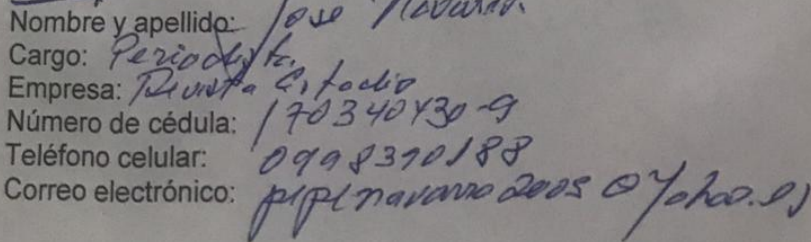 Nombre y apellido: Jose Navarro
Cargo: Periodista
Empresa: Revista Estadio
Número de cédula: 170340430-9
Teléfono celular: 0998390188
Correo electrónico: pepenavarro2005@yahoo.es